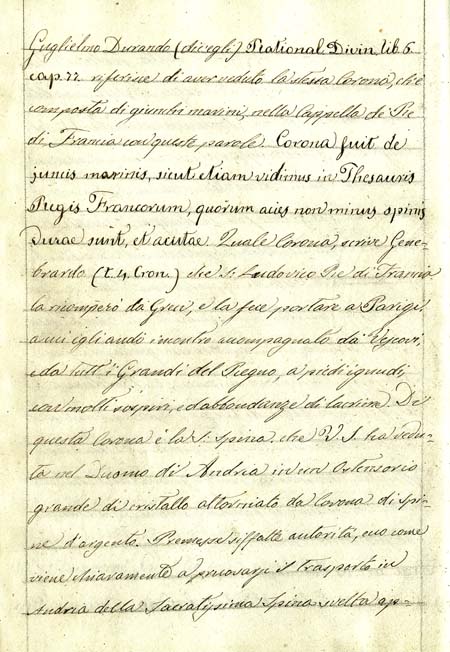 Guglielmo Durando (dic'egli) Rational. Divin. lib. 6.
cap. 77 riferisce di aver veduto la stessa Corona, ch'è
composta di giunchi marini, nella Cappella de' Re
di Francia con queste parole. Corona fuit de
juncis marinis, sicut etiam vidimus in Thesauris
Regis Francorum, quorum acies non minus spinis
durae sunt, et acutae. Quale Corona, scrive Gene-
brardo (L. 4. Cron.) che S. Ludovico Re di Francia
la ricomperò da Greci, e la fece portare a Parigi,
a cui egli andò incontro accompagnato da' Vescovi,
e da tutt' i Grandi del Regno, a piedi ignudi,
con molti sospiri, ed abbondanze di lacrime. Di
questa Corona è la S. Spina, che V. S. ha vedu-
ta nel Duomo di Andria in un Ostensorio
grande di cristallo attorniato da Corona di spi-
ne d'argento. Premesse siffatte autorità, ecco come
viene chiaramente a provarsi il trasporto in
Andria della Sacratissima Spina svelta ap-